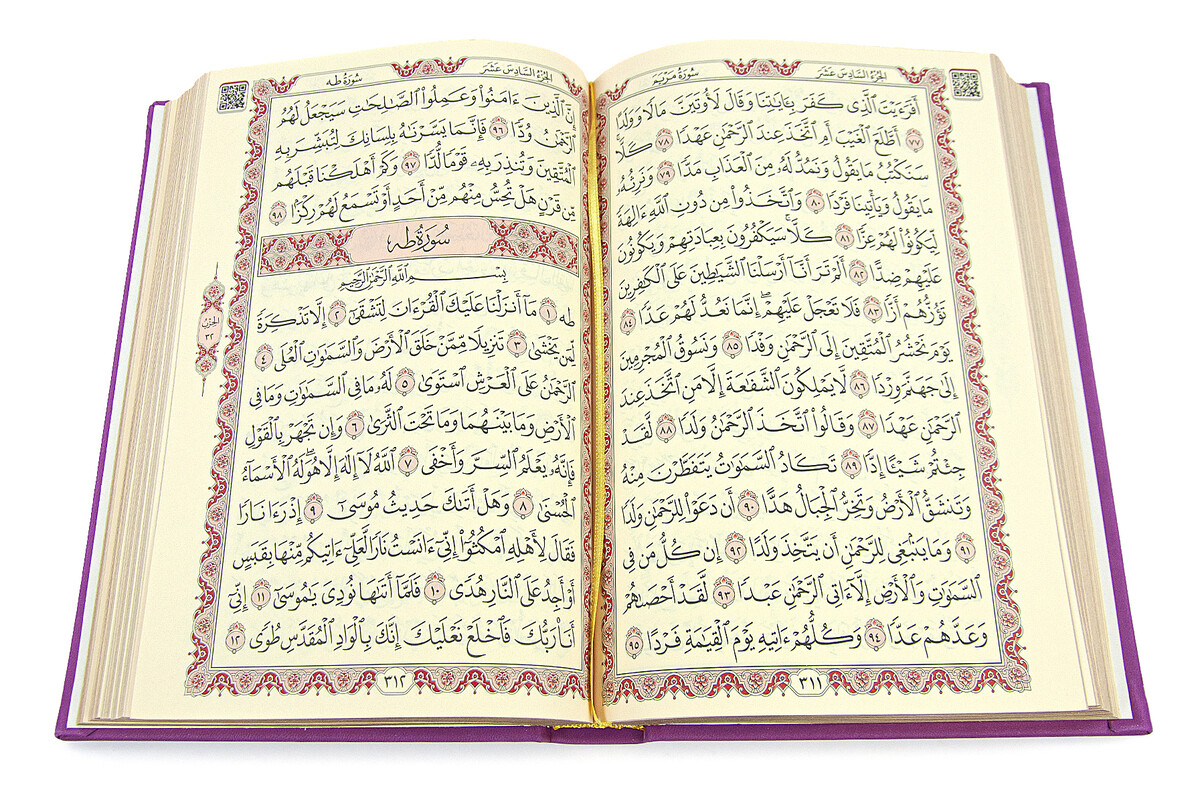 سُورَةُ مَرْيَمَ
الجُزْءُ السَّادِسَ عَشَرَ
أَفَرَءَيْتَ ٱلَّذِى كَفَرَ بِـَٔايَـٰتِنَا وَقَالَ لَأُوتَيَنَّ مَالًا وَوَلَدًا
٧٧ أَطَّلَعَ ٱلْغَيْبَ أَمِ ٱتَّخَذَ عِندَ ٱلرَّحْمَـٰنِ عَهْدًا ٧٨ كَلَّا
سَنَكْتُبُ مَا يَقُولُ وَنَمُدُّ لَهُۥ مِنَ ٱلْعَذَابِ مَدًّا ٧٩ وَنَرِثُهُۥ
مَا يَقُولُ وَيَأْتِينَا فَرْدًا ٨٠ وَٱتَّخَذُوا۟ مِن دُونِ ٱللَّهِ ءَالِهَةً
لِّيَكُونُوا۟ لَهُمْ عِزًّا ٨١ كَلَّا سَيَكْفُرُونَ بِعِبَادَتِهِمْ وَيَكُونُونَ
عَلَيْهِمْ ضِدًّا ٨٢ أَلَمْ تَرَ أَنَّآ أَرْسَلْنَا ٱلشَّيَـٰطِينَ عَلَى ٱلْكَـٰفِرِينَ
تَؤُزُّهُمْ أَزًّا ٨٣ فَلَا تَعْجَلْ عَلَيْهِمْ إِنَّمَا نَعُدُّ لَهُمْ عَدًّا ٨٤
يَوْمَ نَحْشُرُ ٱلْمُتَّقِينَ إِلَى ٱلرَّحْمَـٰنِ وَفْدًا ٨٥ وَنَسُوقُ ٱلْمُجْرِمِينَ
إِلَىٰ جَهَنَّمَ وِرْدًا ٨٦ لَّا يَمْلِكُونَ ٱلشَّفَـٰعَةَ إِلَّا مَنِ ٱتَّخَذَ عِندَ
ٱلرَّحْمَـٰنِ عَهْدًا ٨٧ وَقَالُوا۟ ٱتَّخَذَ ٱلرَّحْمَـٰنُ وَلَدًا ٨٨ لَّقَدْ
جِئْتُمْ شَيْـًٔا إِدًّا ٨٩ تَكَادُ ٱلسَّمَـٰوَٰتُ يَتَفَطَّرْنَ مِنْهُ
وَتَنشَقُّ ٱلْأَرْضُ وَتَخِرُّ ٱلْجِبَالُ هَدًّا ٩٠ أَن دَعَوْا۟ لِلرَّحْمَـٰنِ وَلَدًا
٩١ وَمَا يَنۢبَغِى لِلرَّحْمَـٰنِ أَن يَتَّخِذَ وَلَدًا ٩٢ إِن كُلُّ مَن فِى
ٱلسَّمَـٰوَٰتِ وَٱلْأَرْضِ إِلَّآ ءَاتِى ٱلرَّحْمَـٰنِ عَبْدًا ٩٣ لَّقَدْ أَحْصَىٰهُمْ
وَعَدَّهُمْ عَدًّا ٩٤ وَكُلُّهُمْ ءَاتِيهِ يَوْمَ ٱلْقِيَـٰمَةِ فَرْدًا ٩٥
٣١١
الجُزْءُ السَّادِسَ عَشَرَ
سُورَةُ طه
إِنَّ ٱلَّذِينَ ءَامَنُوا۟ وَعَمِلُوا۟ ٱلصَّـٰلِحَـٰتِ سَيَجْعَلُ لَهُمُ
ٱلرَّحْمَـٰنُ وُدًّا ٩٦ فَإِنَّمَا يَسَّرْنَـٰهُ بِلِسَانِكَ لِتُبَشِّرَ بِهِ
ٱلْمُتَّقِينَ وَتُنذِرَ بِهِۦ قَوْمًا لُّدًّا ٩٧ وَكَمْ أَهْلَكْنَا قَبْلَهُم
مِّن قَرْنٍ هَلْ تُحِسُّ مِنْهُم مِّنْ أَحَدٍ أَوْ تَسْمَعُ لَهُمْ رِكْزًۢا ٩٨
سُورَةُ طه
بِسْمِ ٱللَّهِ ٱلرَّحْمَـٰنِ ٱلرَّحِيمِ
طه ١ مَآ أَنزَلْنَا عَلَيْكَ ٱلْقُرْءَانَ لِتَشْقَىٰٓ ٢ إِلَّا تَذْكِرَةً
لِّمَن يَخْشَىٰ ٣ تَنزِيلًا مِّمَّنْ خَلَقَ ٱلْأَرْضَ وَٱلسَّمَـٰوَٰتِ ٱلْعُلَى ٤
ٱلرَّحْمَـٰنُ عَلَى ٱلْعَرْشِ ٱسْتَوَىٰ ٥ لَهُۥ مَا فِى ٱلسَّمَـٰوَٰتِ وَمَا فِى
ٱلْأَرْضِ وَمَا بَيْنَهُمَا وَمَا تَحْتَ ٱلثَّرَىٰ ٦ وَإِن تَجْهَرْ بِٱلْقَوْلِ
فَإِنَّهُۥ يَعْلَمُ ٱلسِّرَّ وَأَخْفَى ٧ ٱللَّهُ لَآ إِلَـٰهَ إِلَّا هُوَ لَهُ ٱلْأَسْمَآءُ
ٱلْحُسْنَىٰ ٨ وَهَلْ أَتَىٰكَ حَدِيثُ مُوسَىٰٓ ٩ إِذْ رَءَا نَارًا
فَقَالَ لِأَهْلِهِ ٱمْكُثُوٓا۟ إِنِّىٓ ءَانَسْتُ نَارًا لَّعَلِّىٓ ءَاتِيكُم مِّنْهَا بِقَبَسٍ
أَوْ أَجِدُ عَلَى ٱلنَّارِ هُدًى ١٠ فَلَمَّآ أَتَىٰهَا نُودِىَ يَـٰمُوسَىٰٓ ١١ إِنِّىٓ
أَنَا۠ رَبُّكَ فَٱخْلَعْ نَعْلَيْكَ إِنَّكَ بِٱلْوَادِ ٱلْمُقَدَّسِ طُوًى ١٢
الحزب
٣٢
٣١٢